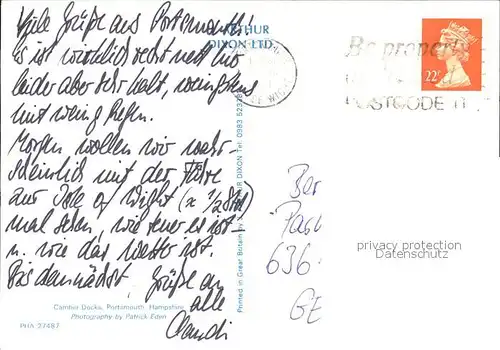 Viele Grüße aus Portsmouth!
Es ist wirklich recht nett hier
leider aber sehr kalt, wenigstens
mit wenig Regen.
Morgen wollen wir wahr-
scheinlich mit der Fähre
zur Isle of Wight (x 1/2 Std)
mal sehen, wie teuer es ist
u. wie das Wetter ist.
Bis demnächst. Grüße an
alle
Claudi
Camber Docks, Portsmouth, Hampshire
Photography by Patrick Eden
PHA 27487
ARTHUR
DIXON LTD.
Printed in Great Britain by
DIXON Tel: 0983 523381
Be properly
POSTCODE IT
22P
Ber
636
GE
privacy protection
Datenschutz